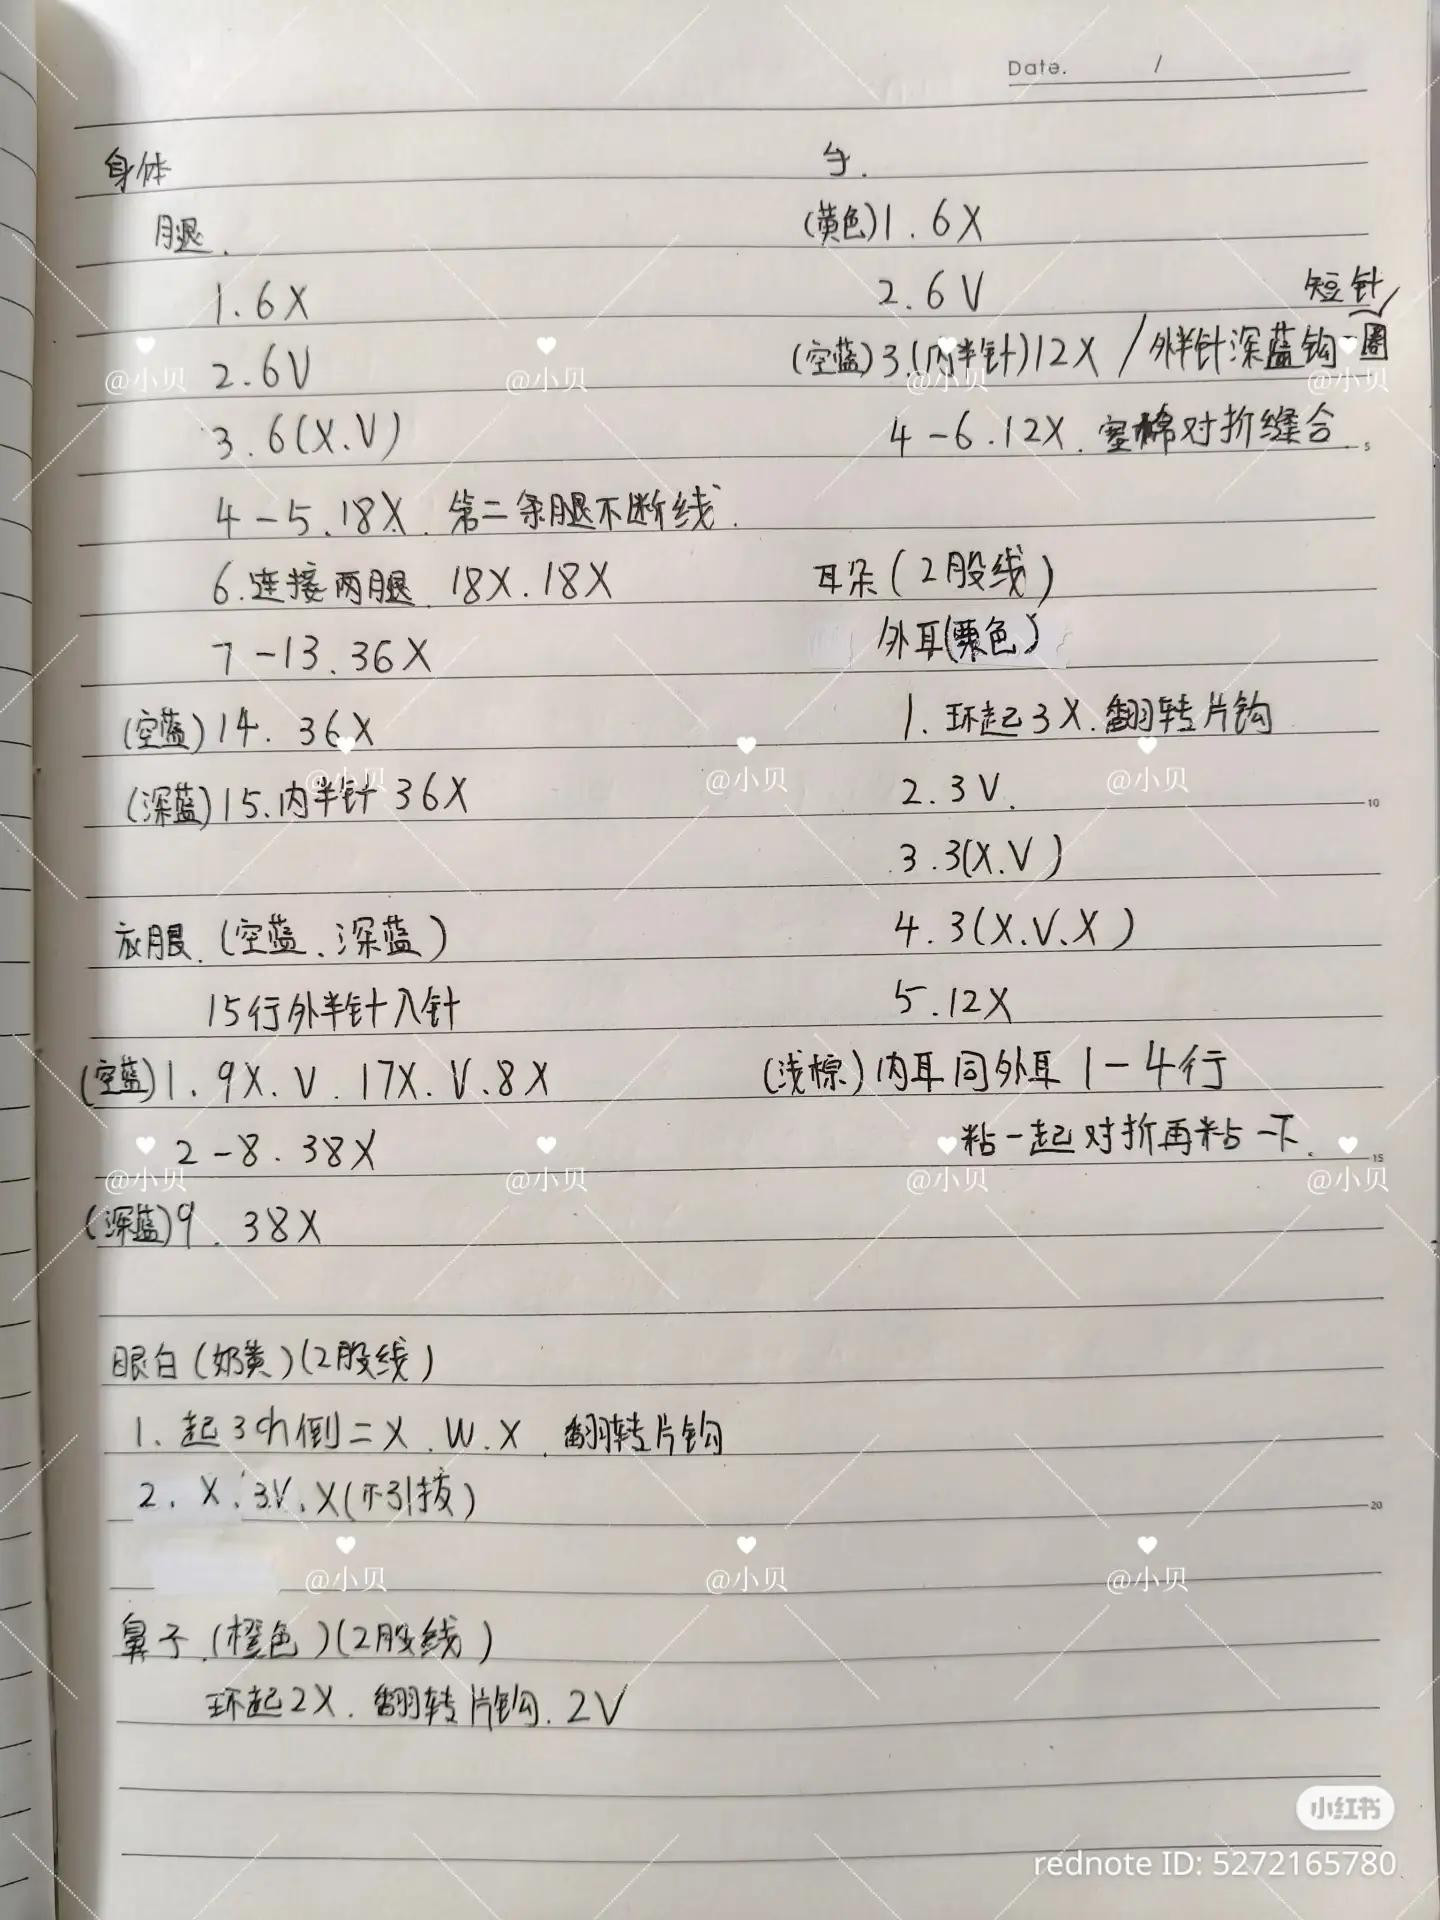 Date. /
身体
腿.
1.6X
2.6V
3.6(X.V)
4-5.18X.第二条腿不断线.
6.连接两腿.18X.18X
7-13.36X
(空蓝)14.36X
(深蓝)15.内半针36X
衣服.(空蓝、深蓝)
15行外半针入针
(空蓝)1.9X.V.17X.V.8X
2-8.38X
(深蓝)9.38X
眼白(奶黄)(2股线)
1.起3ch倒二X.W.X.翻转片钩
2.X.3V.X(不引拔)
鼻子.(橙色)(2股线)
环起2X.翻转片钩.2V
手.
(黄色)1.6X
2.6V
短针
(空蓝)3.(内半针)12X/外半针深蓝钩一圈
4-6.12X.塞棉对折缝合
5
耳朵(2股线)
外耳(栗色)
1.环起3X.翻转片钩
2.3V.
10
3.3(X.V)
4.3(X.V.X)
5.12X
(浅棕)内耳同外耳1-4行
粘一起对折再粘一下.
15
20
@小贝 @小贝 @小贝 @小贝
@小贝 @小贝 @小贝
@小贝 @小贝 @小贝 @小贝
@小贝 @小贝 @小贝
小红书
rednote ID: 5272165780